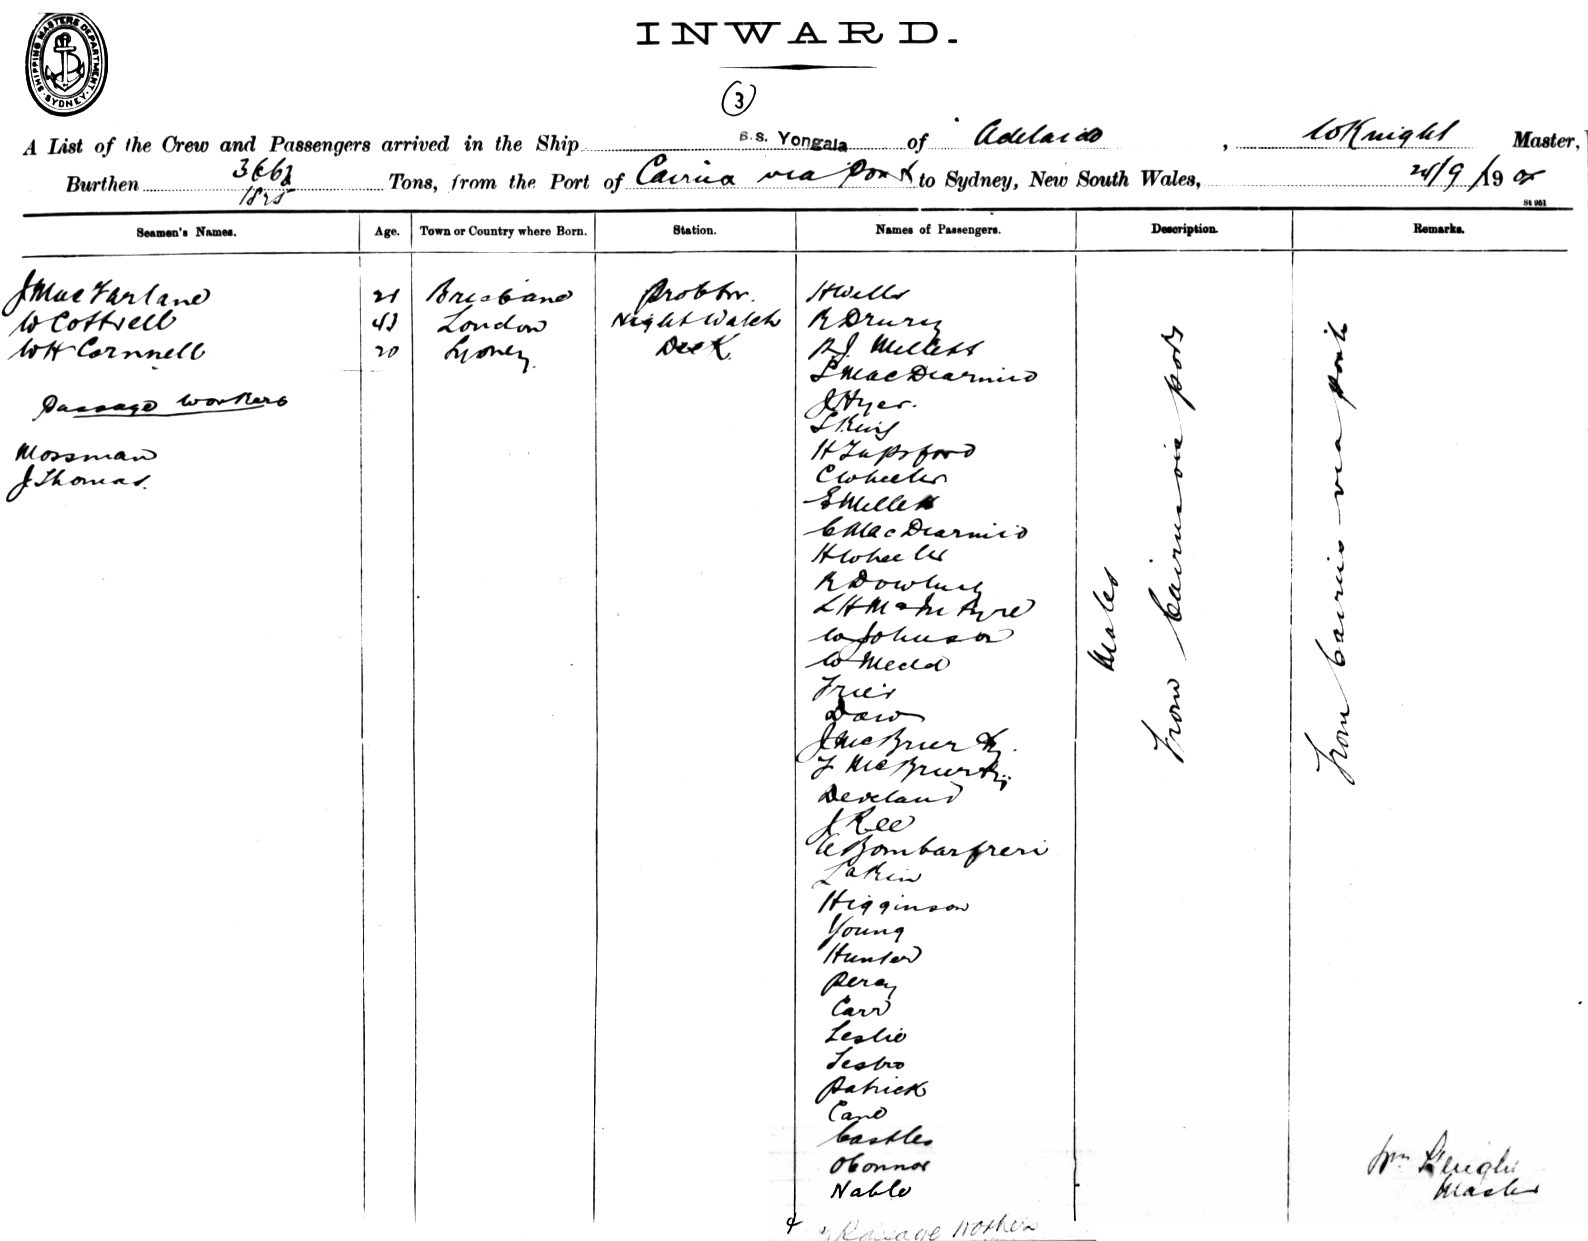 SHIPPING MASTERS DEPARTMENT SYDNEY
INWARD.
3
A List of the Crew and Passengers arrived in the Ship S.S. Yongala of Adelaide, W Knight Master,
Burthen Tons, from the Port of Cairns via Ports to Sydney, New South Wales, 24/9/190
1825
St 961
Seamen's Names. Age. Town or Country where Born. Station. Names of Passengers. Description. Remarks.
J MacFarlane 21 Brisbane H Wells
W Cottrell 43 London Night Watch R Drury
W H Cornnell 20 Sydney Deck R J Mellett
L MacDiarmid
Passage Workers
J Hyer.
L King
Mossman
H Tapsford
J Thomas.
C Wheeler
E Mellett
C MacDiarmid
H Wheeler
R Dowling
L H McIntyre
W Johnson
W Medd
Daw
J McBrierty
F McBrierty
Develand
J Ree
Lakin
Higginson
Young
Hunter
Percy
Carr
Leslie
Patrick
Cane
Castles
OConnor
Noble
Males
From Cairns via ports
From Cairns via ports
Wm Knight
Master
Passage Workers